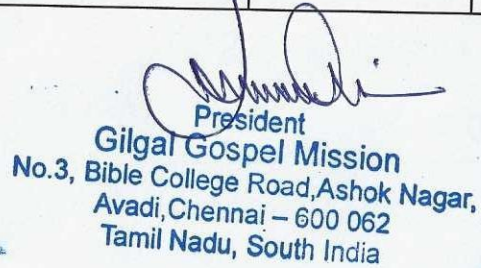 President
Gilgal Gospel Mission
No.3, Bible College Road,Ashok Nagar,
Avadi,Chennai – 600 062
Tamil Nadu, South India